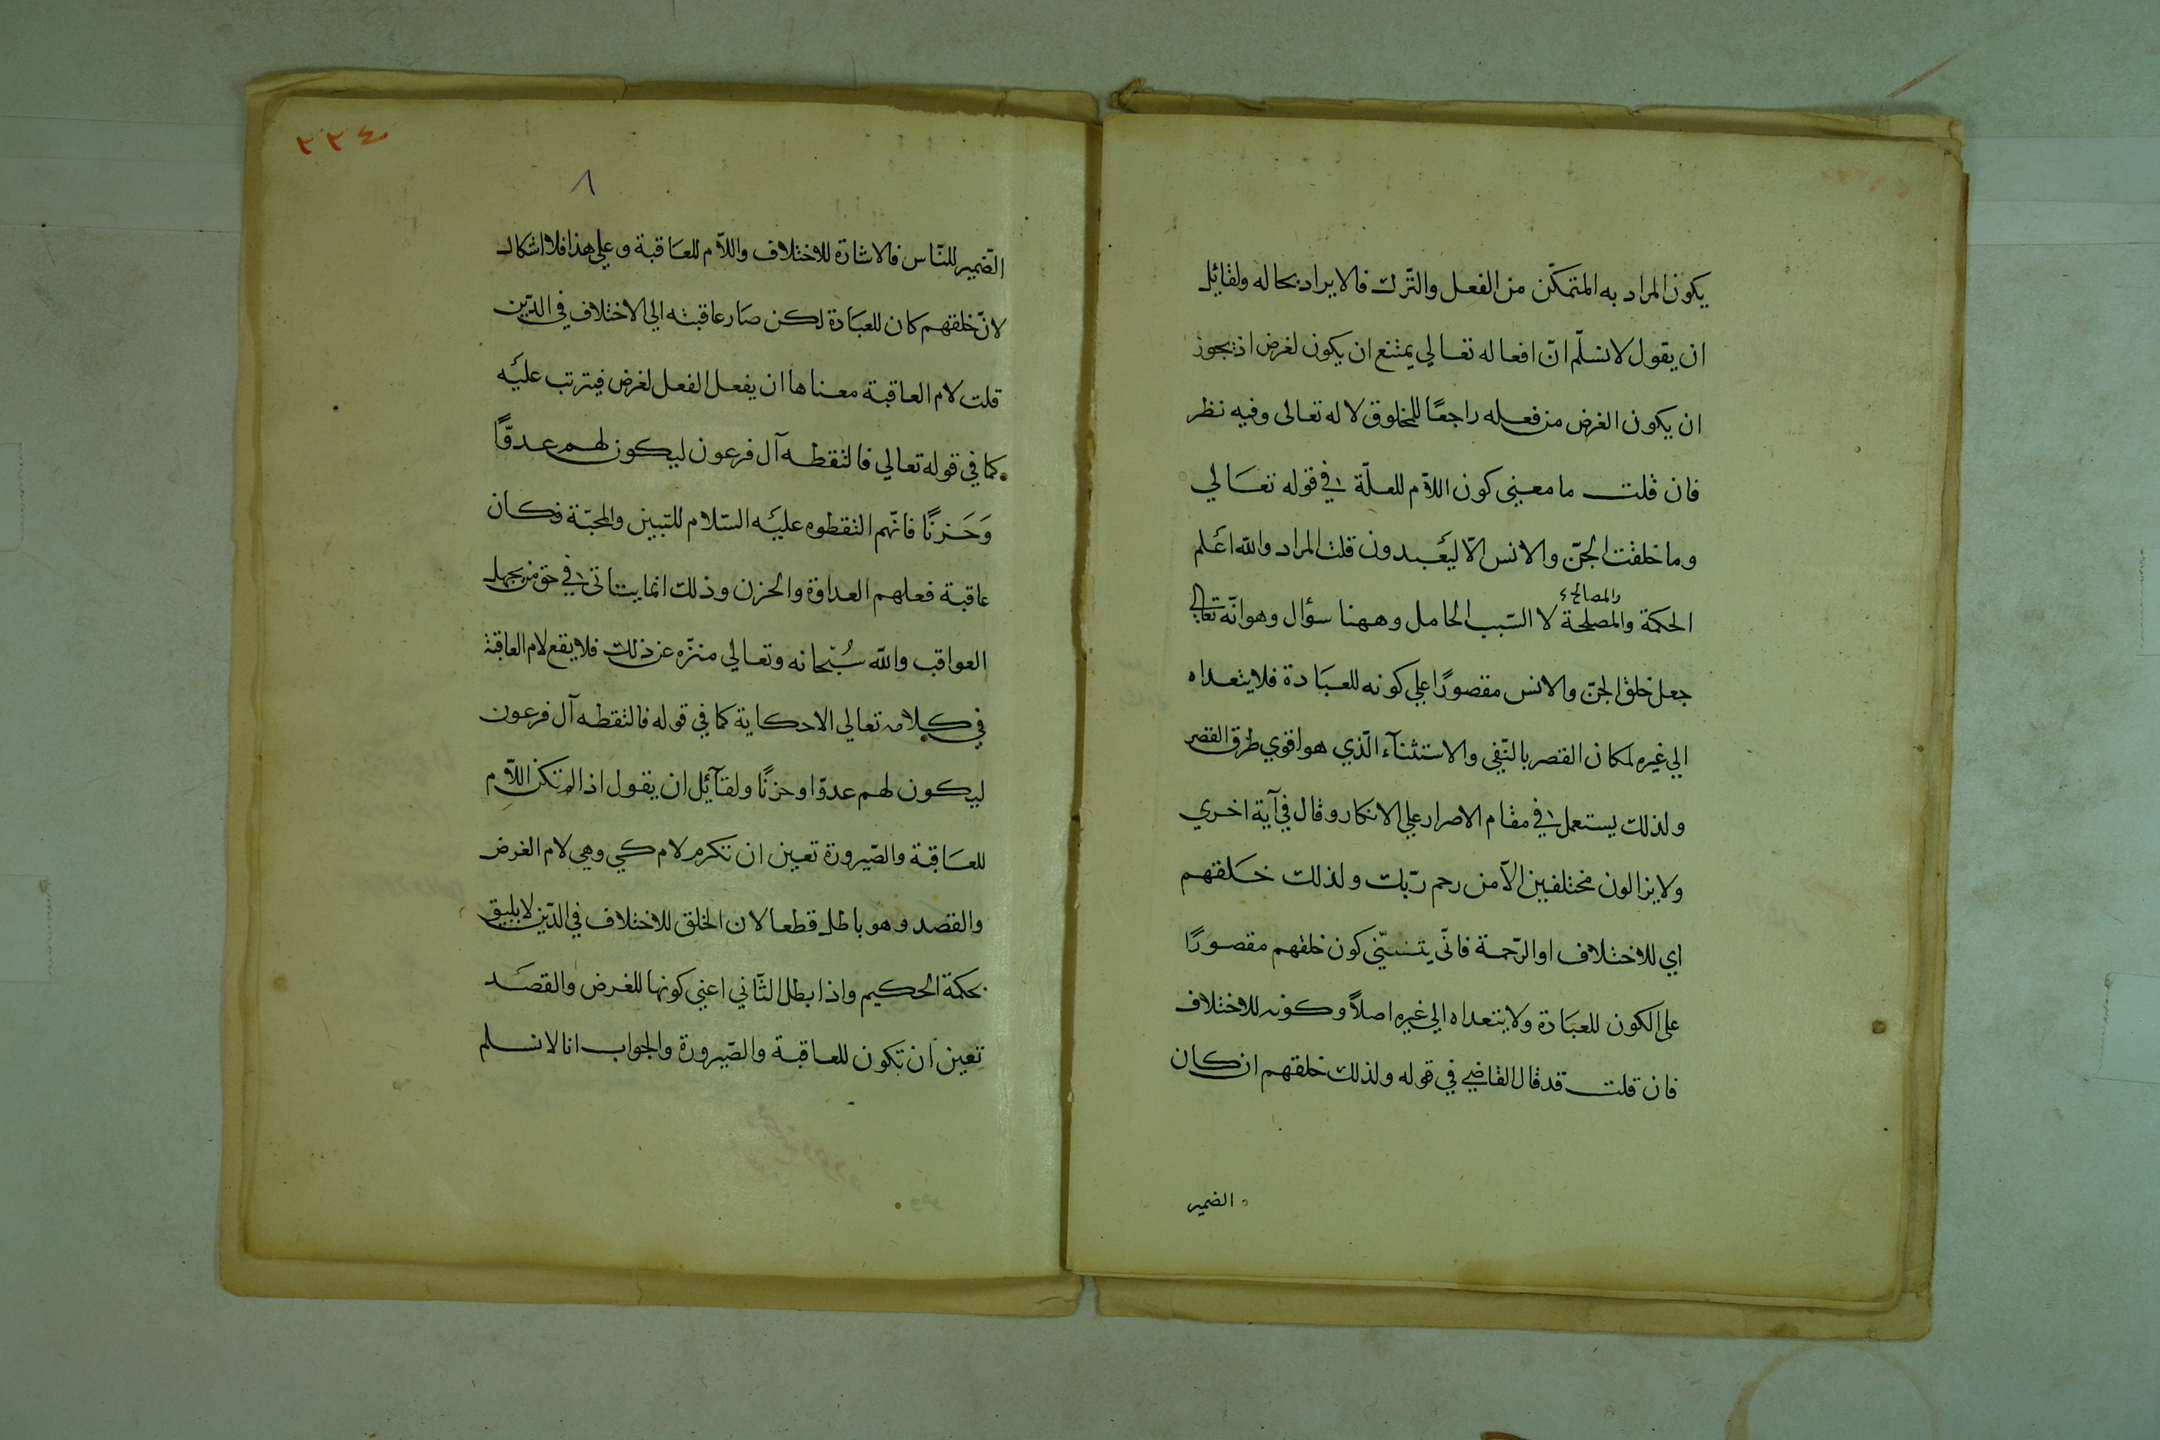 يكون المراد به المتمكّن من الفعل والتّرك فالايراد بحاله ولقائل
ان يقول لا نسلّم انّ افعاله تعالي يمتنع ان يكون لغرض اذ يجوز
ان يكون الغرض من فعله راجعًا للمخلوق لا له تعالى وفيه نظر
فان قلت ما معنى كون اللّام للعلّة في قوله تعَالي
وما خلقت الجنّ والانس الّا ليعَبدون قلت المراد واللّه اعَلم
والمصالح
الحكمة والمصلحة لا السّبب الحامل وههنا سؤال وهو انّه تعالي
جعل خلق الجنّ والانس مقصورًا علي كونه للعبَادة فلا يتعداه
الي غيره لمكان القصر بالنّفي والاستثنآء الّذي هو اقوي طرق القصر
ولذلك يستعمل في مقام الاصرار علي الانكار وقال في آية اخري
ولا يزالون مختلفين الّا من رحم ربّك ولذلك خلقهم
اي للاختلاف او الرّحمة فانّى يتسنّي كون خلقهم مقصورًا
على الكون للعبَادة ولا يتعداه الي غيره اصلاً وكونه للاختلاف
فان قلت قد قال القاضي في قوله ولذلك خلقهم ان كان
الضمير
٣٣٤
٨
الضّمير للنّاس فالاشارة للاختلاف واللّام للعَاقبة وعلي هذا فلا اشكال
لانّ خلقهم كان للعبَادة لكن صَار عاقبته الي الاختلاف في الدّين
قلت لام العاقبة معناها ان يفعل الفعل لغرض فيترتب عليَه
كما في قوله تعالي فالتقطه آل فرعون ليكون لهم عدوًّا
وَحَزنًا فانّهم التقطوه عليَه السّلام للتبين والمحبّة فكان
عاقبة فعلهم العداوة والحزن وذلك انما يتاتى في حق من يجهل
العواقب واللّه سُبْحانه وتعالي منزّه عن ذلك فلا يقع لام العاقبة
في كلامه تعالي الا حكاية كما في قوله فالتقطه آل فرعون
ليكون لهم عدوّا وحزنًا ولقآئل ان يقول اذا لم تكن اللّام
للعَاقبة والصّيرورة تعين ان تكون لام كي وهي لام الغرض
والقصد وهو باطل قطعا لان الخلق للاختلاف في الدّين لا يليق
بحكمة الحكيم واذا بطل الثّاني اعني كونها للغرض والقصَد
تعين ان تكون للعاقبة والصّيرورة والجواب انا لا نسلم